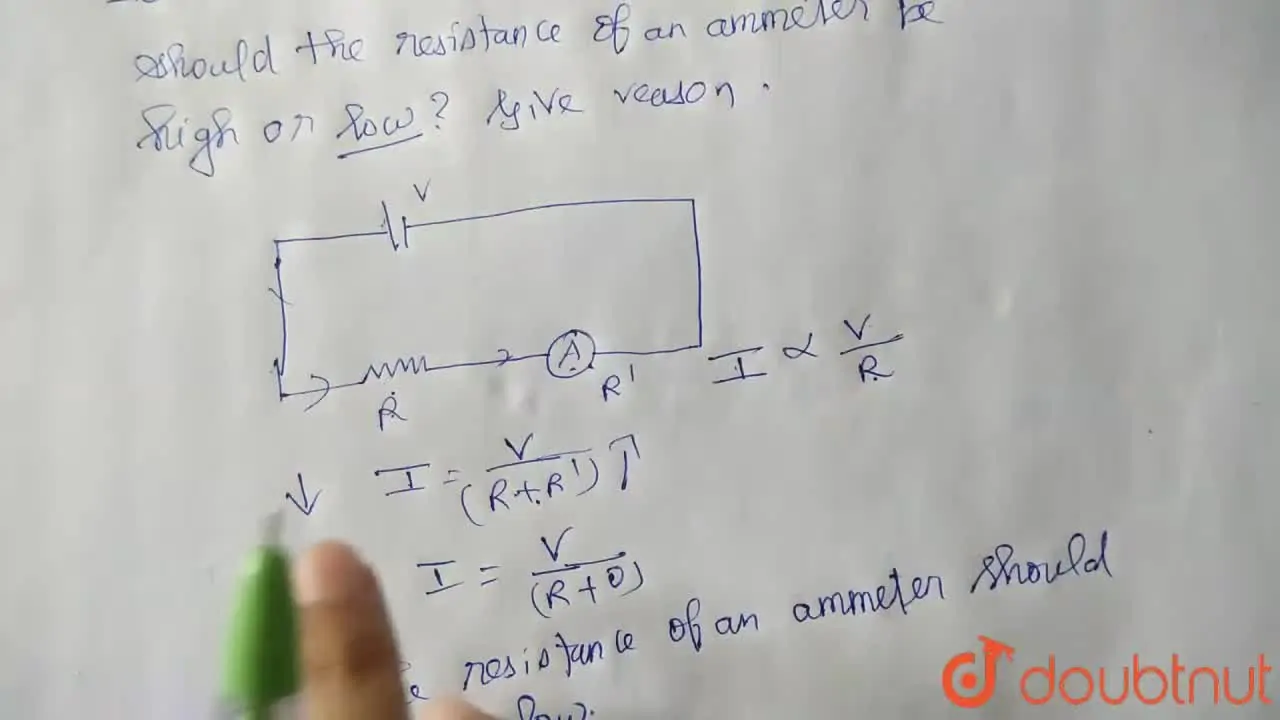 should the resistance of an ammeter be
high or low? Give reason.
V
A
R
R'
I ∝ V/R
I = V/(R+R') ↑
↓
I = V/(R+0)
resistance of an ammeter should
low.
doubtnut